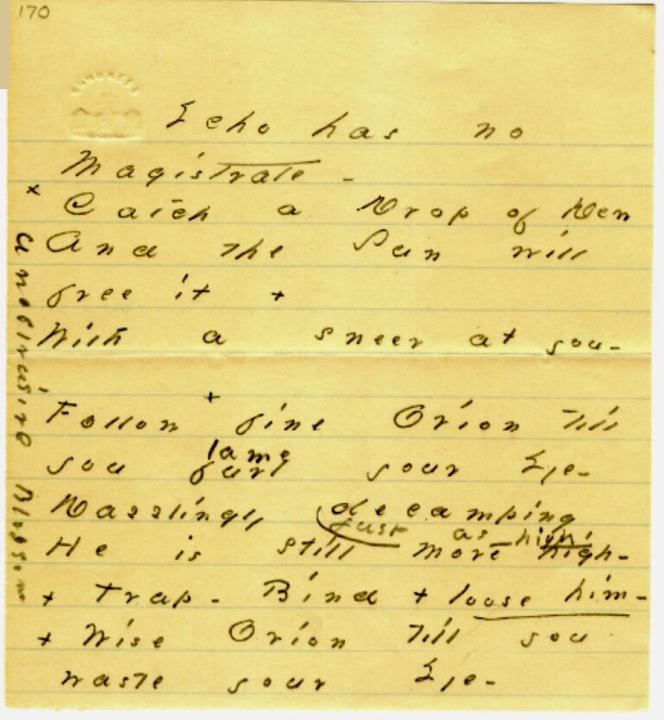 170
CONGRESS
Echo has no
Magistrate -
x Catch a Drop of Dew
And the Sun will
free it +
With a sneer at you -
Follow + fine Orion till
you furl lame your Eye -
Dazzlingly decamping
just as high!
He is still more high -
+ trap - Bind + loose him -
+ Wise Orion till you
waste your Eye -
unobtrusive Blossom